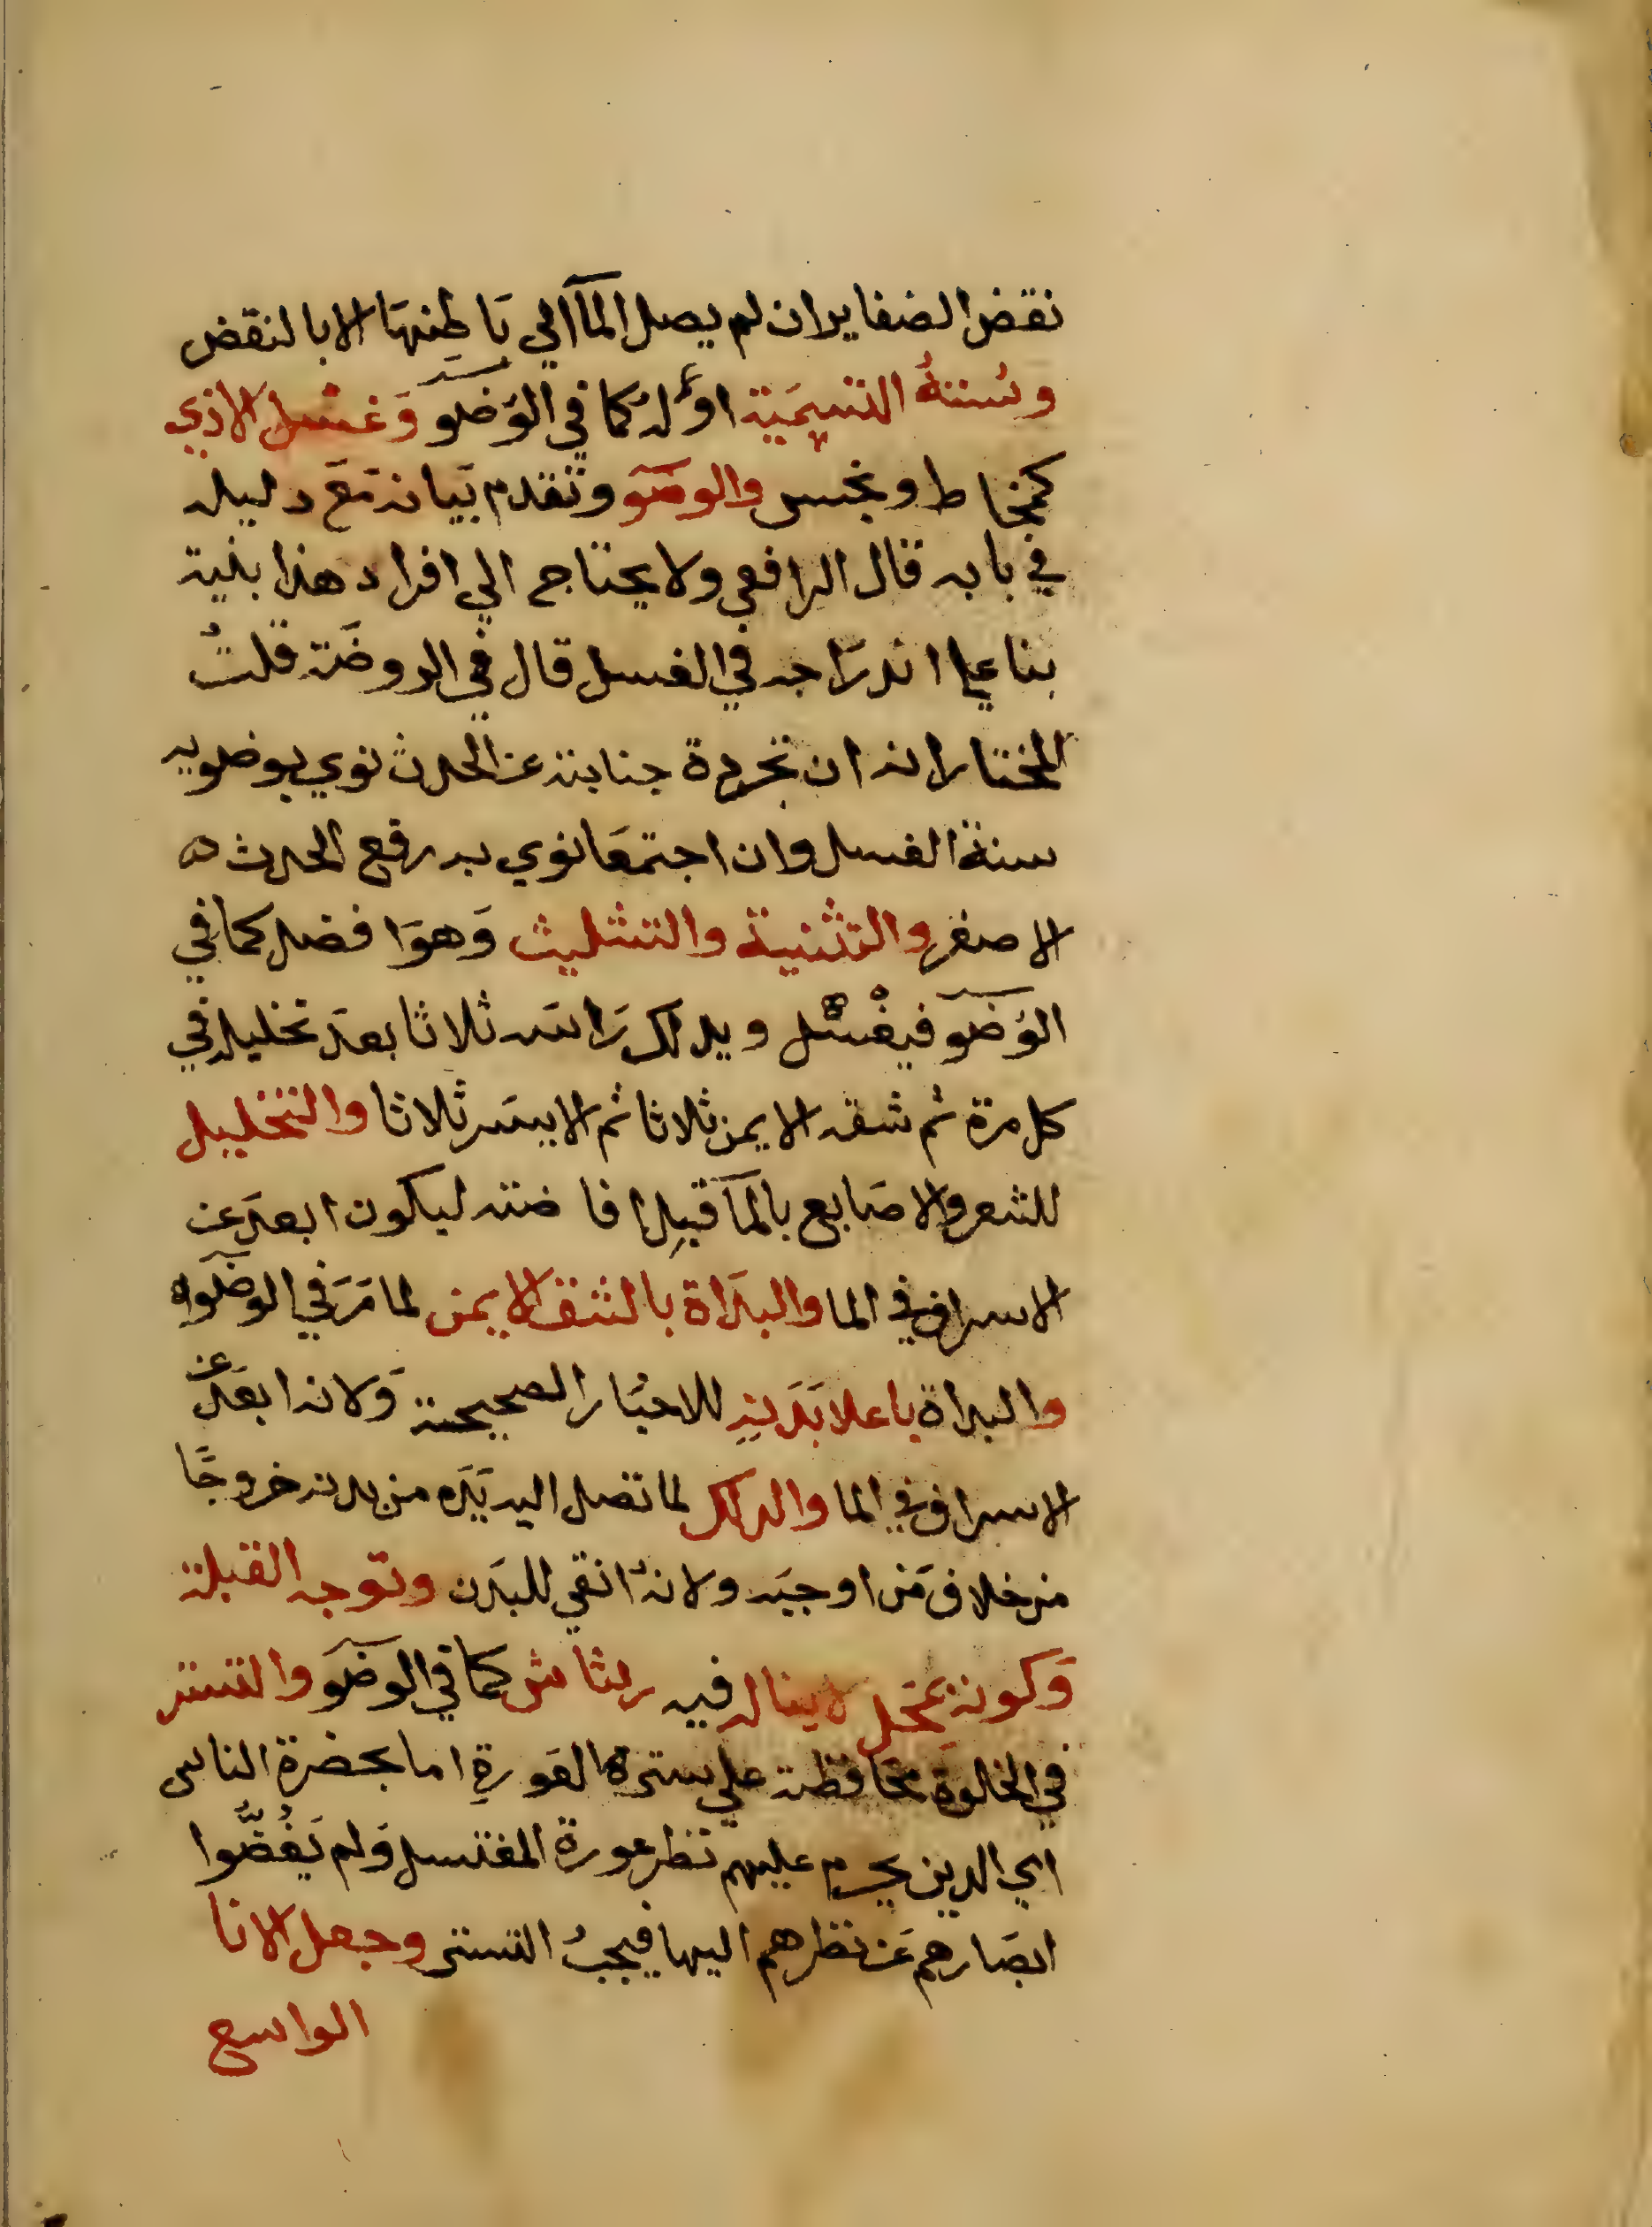 نقض الضفاير ان لم يصل المآ الي بَاطِنهَا الا بالنقض
وسُننهُ التسميَة اوّله كما في الوَضوِّ وَغَسْل الاذي
كمخاط ونجس والوضوٓ وتقدم بَيانه مَع دليله
في بابه قال الرافعي ولا يحتاج الي افراد هذا بنية
بنا علي اندرَاجه في الغسل قال في الروضَة قلتُ
المختار انه ان تجردة جنابته عن الحدث نوي بوضويه
سنة الغسل وان اجتمعَا نوي به رفع الحدث ه
الاصغر والتثنية والتثليث وَهوَ افضل كما في
الوَضوٓ فيغْسْل ويدلك رَاسَه ثلاثا بعدَ تخليله في
كل مرة ثم شقه الايمن ثلاثا ثم الايسَر ثلاثا والتخليل
للشعر والاصَابع بالمآ قبل افاضته ليكون ابعدَ عن
الاسراف في الما والبدَاة بالشق الايمن لما مَرَ في الوضَوٓ ه
والبداة باعلا بَدَنِهِ للاخبَار الصحيحة وَلانه ابعَدُ عن
الاسراف في الما والدلك لما تصل اليه يَدَه من بدنه خروجًا
من خلاف مَن اوجبَه ولانهُ انقي للبَدن وتوجه القبلة
وَكونه بمحَل لا يناله فيه رشاش كما في الوضَوٓ والتستر
في الخلوة محَافظة علي سترة العَورةِ اما بحضرة الناس
اي الذين يحرم عليهم نظر عورة المغتسل وَلم يَغُضُّوا
ابصَارهم عَن نظرهم اليها فيجبُ التستر وجعل الانا
الواسع